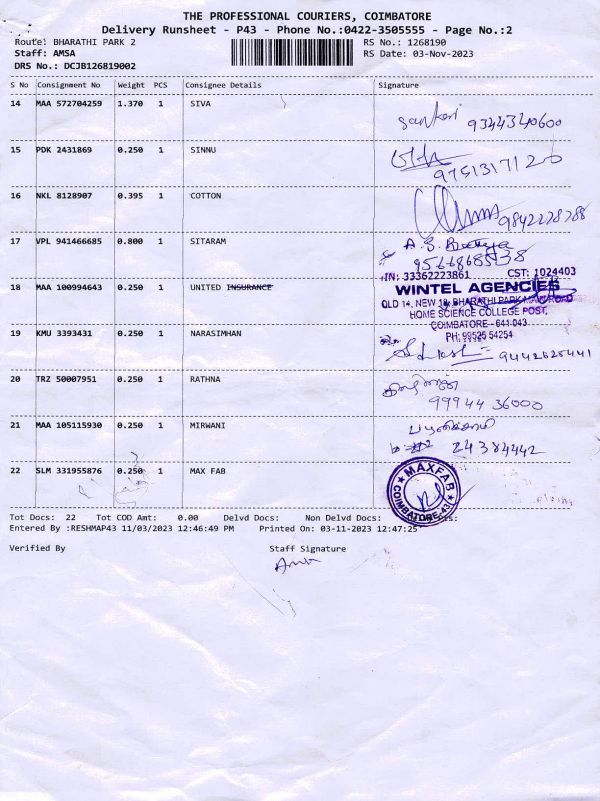 THE PROFESSIONAL COURIERS, COIMBATORE
Delivery Runsheet - P43 - Phone No.:0422-3505555 - Page No.:2
Route: BHARATHI PARK 2 RS No.: 1268190
Staff: AMSA RS Date: 03-Nov-2023
DRS No.: DCJB126819002
S No Consignment No Weight PCS Consignee Details Signature
14 MAA 572704259 1.370 1 SIVA
9344340600
15 PDK 2431869 0.250 1 SINNU
9751317120
16 NKL 8128907 0.395 1 COTTON
9842278788
17 VPL 941466685 0.800 1 SITARAM
9566868538
IN: 33362223861 CST: 1024403
18 MAA 100994643 0.250 1 UNITED INSURANCE WINTEL AGENCIES
OLD 14, NEW 18, BHARATHI PARK MAIN ROAD
HOME SCIENCE COLLEGE POST,
COIMBATORE - 641 043
19 KMU 3393431 0.250 1 NARASIMHAN PH: 99525 54254
9442625441
20 TRZ 50007951 0.250 1 RATHNA
99944 36000
21 MAA 105115930 0.250 1 MIRWANI பழனிச்சாமி
24384442
22 SLM 331955876 0.250 1 MAX FAB MAXFAB
COIMBATORE-43
Tot Docs: 22 Tot COD Amt: 0.00 Delvd Docs: Non Delvd Docs:
Entered By :RESHMAP43 11/03/2023 12:46:49 PM Printed On: 03-11-2023 12:47:25
Verified By Staff Signature